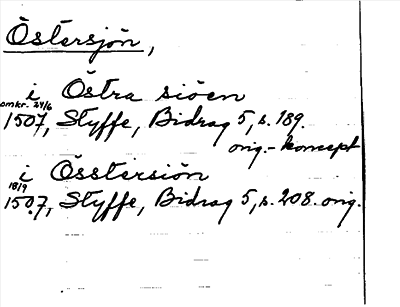 Östersjön,
i Östra siöen
omkr. 24/6
1507, Styffe, Bidrag 5, s. 189.
orig.-koncept
i Össtersiön
18/9
1507, Styffe, Bidrag 5, s. 208. orig.